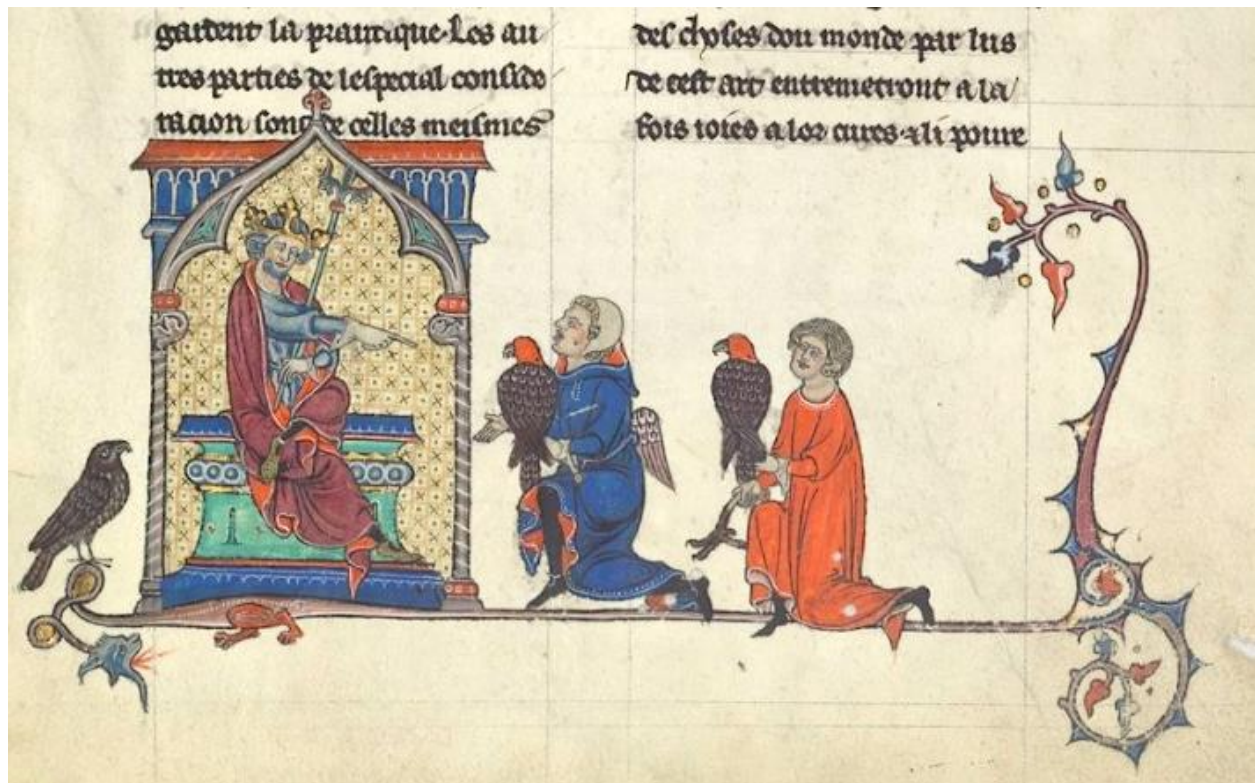 gardent la pratique·Les au
tres parties de lespecial conside
racion sont de celles meismes
des choses dou monde par lus
de cest art entremetront a la
fois ioies a lor cures·a li poure